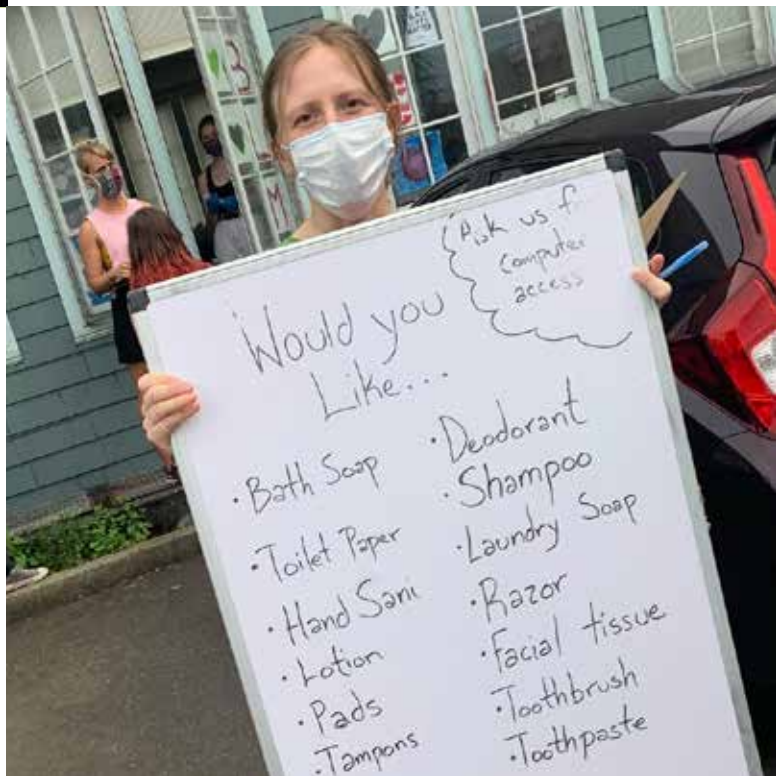 Ask us f
computer
access
Would you
Like...
• Bath Soap
• Toilet Paper
• Hand Sani
• Lotion
• Pads
• Tampons
• Deodorant
• Shampoo
• Laundry Soap
• Razor
• Facial tissue
• Toothbrush
• Toothpaste